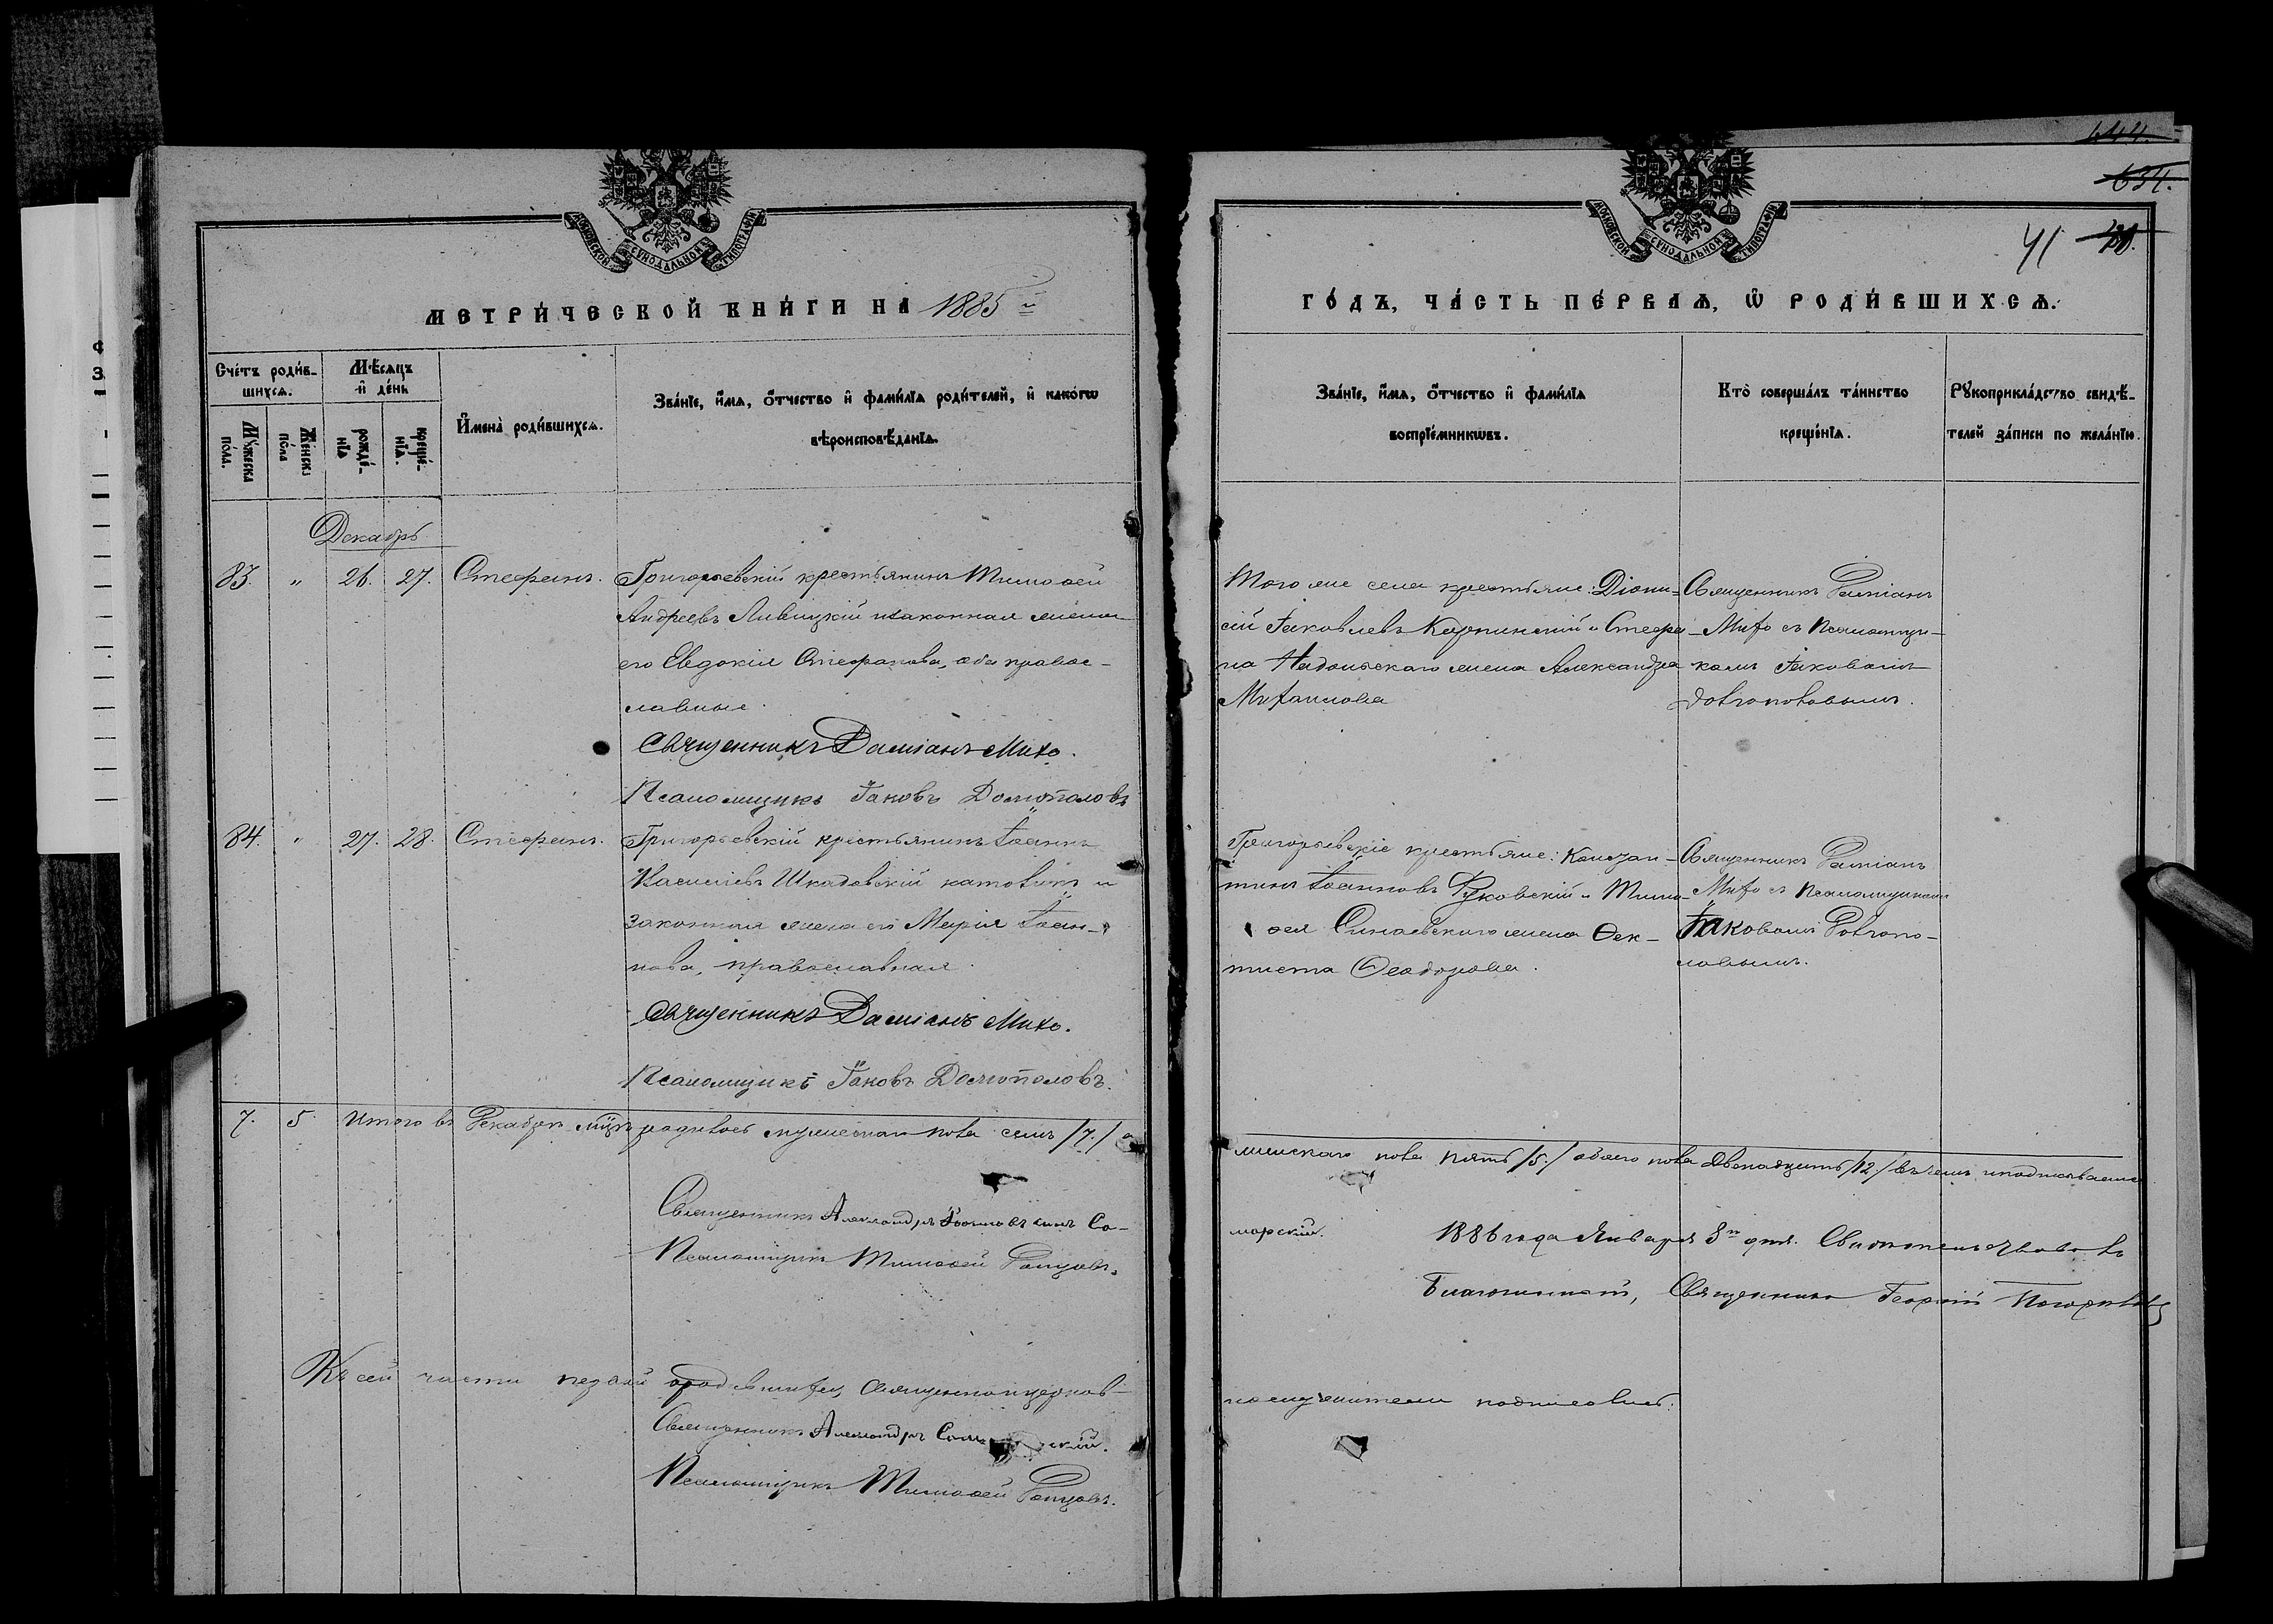 644.
634.
41
МОСКОВСКОЙ СУНОДАЛЬНОЙ ТИПОГРАФІИ
МОСКОВСКОЙ СУНОДАЛЬНОЙ ТИПОГРАФІИ
МЕТРИ́ЧЕСКОЙ КНИ́ГИ НА 1885 й
ГО́ДЪ, ЧА́СТЬ ПЕ́РВАѦ, Ѡ҆ РОДИ́ВШИХСѦ.
Сче́тъ роди́в-
шихсѧ.
Мѣ́сѧцъ
и҆ де́нь
Му́жеска
по́ла.
Же́нска
по́ла
рожде́-
нїѧ
креще́-
нїѧ.
И҆мена̀ роди́вшихсѧ.
Зва́нїе, и҆́мѧ, ѻ҆́тчество и҆ фами́лїѧ роди́телей, и҆ како́гѡ
вѣроисповѣ́данїѧ.
Зва́нїе, и҆́мѧ, ѻ҆́тчество и҆ фами́лїѧ
воспрїе́мникѡвъ.
Кто̀ соверша́лъ та́инство
креще́нїѧ.
Рꙋкоприкла́дство свидѣ́-
телей за́писи по жела́нїю.
Декабрь
83. " 26. 27. Стефанъ. Григорьевскій крестьянинъ Тимоѳей
Андреевъ Ливицкій и законная жена
его Евдокія Стефанова, оба правос-
лавные.
Священникъ Даміанъ Михо.
Псаломщикъ Іаковъ Долгополовъ
Того же села крестьяне: Діони-
сій Іаковлевъ Карпинскій и Стефа-
на жена Александра
Священникъ Даміанъ
Михо съ Псаломщи-
комъ Іаковомъ
Долгополовымъ.
84. " 27. 28. Стефанъ. Григорьевскій крестьянинъ Іоаннъ
Васильевъ Шкадовскій католикъ и
законная жена его Марія Іоан-
нова, православная.
Священникъ Даміанъ Михо.
Псаломщикъ Іаковъ Долгополовъ.
Григорьевскіе крестьяне: Констан-
тинъ Іоанновъ и Тимо-
ѳея Синаевскаго жена Ѳек-
тиста Ѳеодорова.
Священникъ Даміанъ
Михо съ Псаломщикомъ
Іаковомъ Долгопо-
ловымъ.
7. 5. Итого въ Декабрѣ мцѣ родилось мужескаго пола семь /7./ а
женскаго пола пять /5./ обоего пола Двенадцать /12./ въ чемъ и подписываемся
Священникъ Александръ Со-
морскій.
Псаломщикъ Тимоѳей
1886 года Января 8го дня. Свидетельствовалъ
Благочинный, Священникъ Георгій
Къ сей части первой о родившихся, Священноцерков-
нослужители подписались:
Священникъ Александръ
Псаломщикъ Тимоѳей